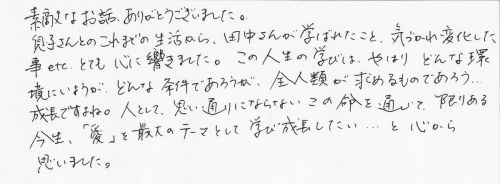 素敵なお話、ありがとうございました。
息子さんとのこれまでの生活から、田中さんが学ばれたこと、気づかれ変化した
事etc. とても心に響きました。この人生の学びは、やはり どんな環
境にいようが、どんな条件であろうが、全人類が求めるものであろう…
成長ですよね。人として、思い通りにならない この命を通じて、限りある
今生、「愛」を最大のテーマとして 学び成長したい…と 心から
思いました。